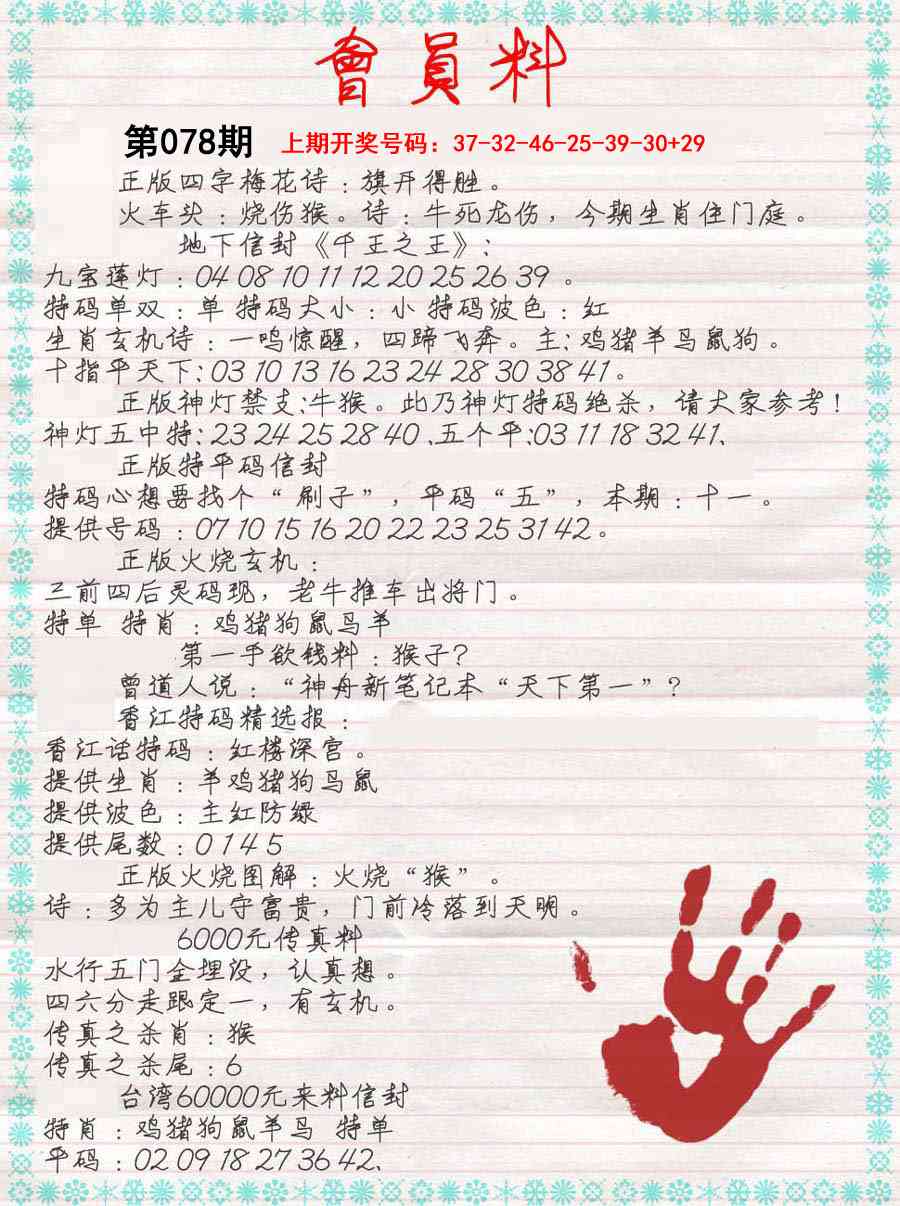 會員料
第078期 上期开奖号码：37-32-46-25-39-30+29
正版四字梅花诗：旗开得胜。
火车头：烧伤猴。诗：牛死龙伤，今期生肖住门庭。
地下信封《千王之王》：
九宝莲灯：04 08 10 11 12 20 25 26 39 。
特码单双：单 特码大小：小 特码波色：红
生肖玄机诗：一鸣惊醒，四蹄飞奔。主：鸡猪羊马鼠狗。
十指平天下：03 10 13 16 23 24 28 30 38 41 。
正版神灯禁支：牛猴。此乃神灯特码绝杀，请大家参考！
神灯五中特：23 24 25 28 40 、五个平：03 11 18 32 41、
正版特平码信封
特码心想要找个“刷子”，平码“五”，本期：十一。
提供号码：07 10 15 16 20 22 23 25 31 42 。
正版火烧玄机：
三前四后灵码现，老牛推车出将门。
特单 特肖：鸡猪狗鼠马羊
第一手欲钱料：猴子？
曾道人说：“神舟新笔记本“天下第一”？
香江特码精选报：
香江话特码：红楼深宫。
提供生肖：羊鸡猪狗马鼠
提供波色：主红防绿
提供尾数：0 1 4 5
正版火烧图解：火烧“猴”。
诗：多为主儿守富贵，门前冷落到天明。
6000元传真料
水行五门金埋设，认真想。
四六分走跟定一，有玄机。
传真之杀肖：猴
传真之杀尾：6
台湾60000元来料信封
特肖：鸡猪狗鼠羊马 特单
平码：02 09 18 27 36 42、